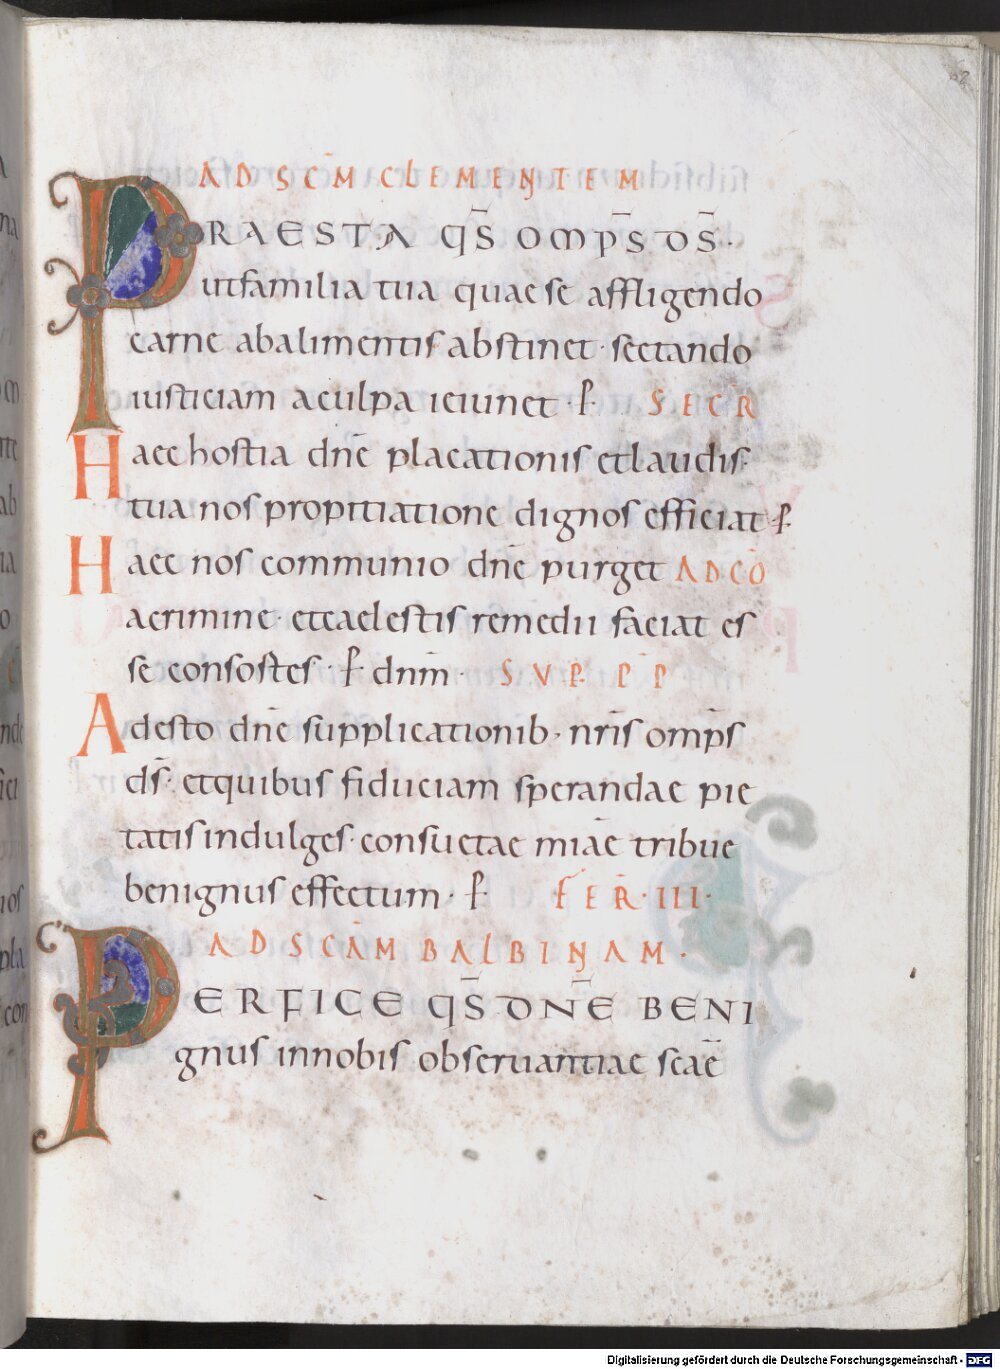 AD SCM̄ CLEMENTEM
PRAESTA QS̄ OMPS̄ DS̄.
ut familia tua quae se affligendo
carne ab alimentis abstinet· sectando
iusticiam a culpa ieiunet· P̄ SECR̄
Haec hostia dnē placationis et laudis·
tua nos propitiatione dignos efficiat P̄
Haec nos communio dnē purget AD CŌ
a crimine· et caelestis remedii faciat es
se consortes· P̄ dnm̄· SUP P̄P̄
Adesto dnē supplicationib· nrīs omps̄
ds̄· et quibus fiduciam sperandae pie
tatis indulges· consuetae miāe tribue
benignus effectum· P̄ FER̄·III·
AD SCĀM BALBINAM·
PERFICE QS̄ DNĒ BENI
gnus in nobis obseruantiae scāe
Digitalisierung gefördert durch die Deutsche Forschungsgemeinschaft - DFG